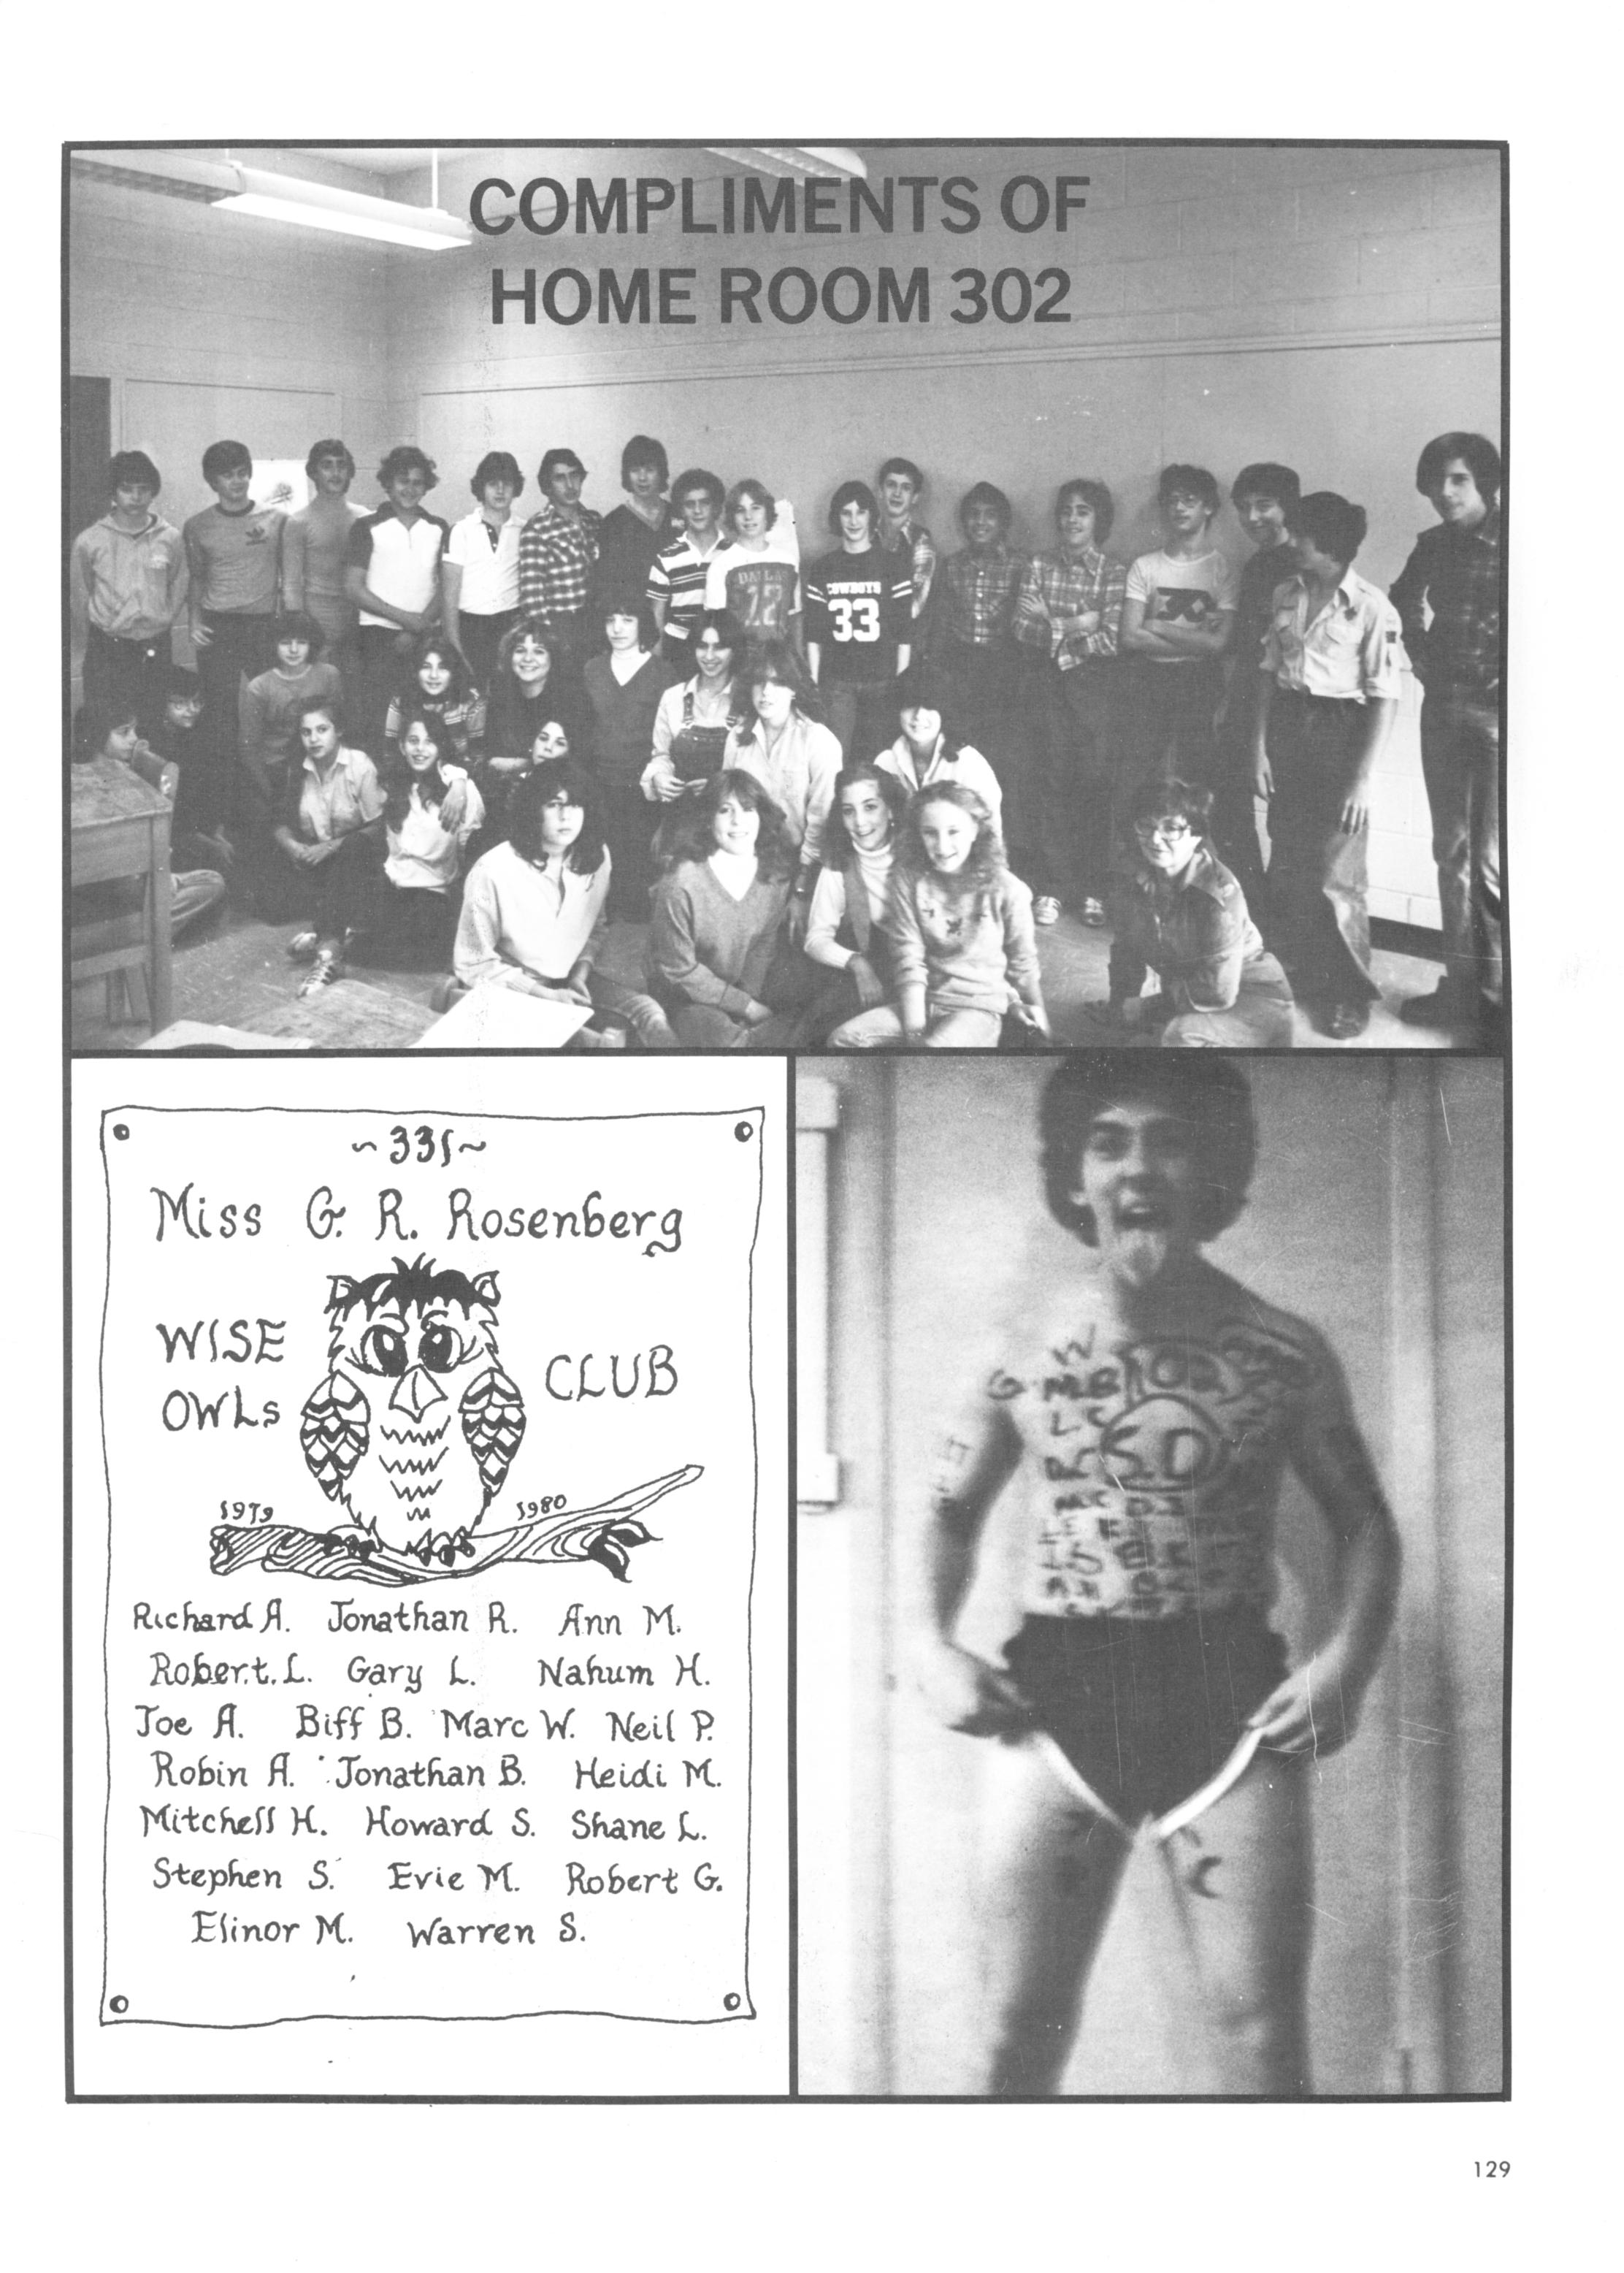 COMPLIMENTS OF
HOME ROOM 302
DALLAS
12
COWBOYS
33
~331~
Miss G. R. Rosenberg
WISE
OWLs
CLUB
1979
1980
Richard A. Jonathan R. Ann M.
Robert. L. Gary L. Nahum H.
Joe A. Biff B. Marc W. Neil P.
Robin A. Jonathan B. Heidi M.
Mitchell H. Howard S. Shane L.
Stephen S. Evie M. Robert G.
Elinor M. Warren S.
S.D
129